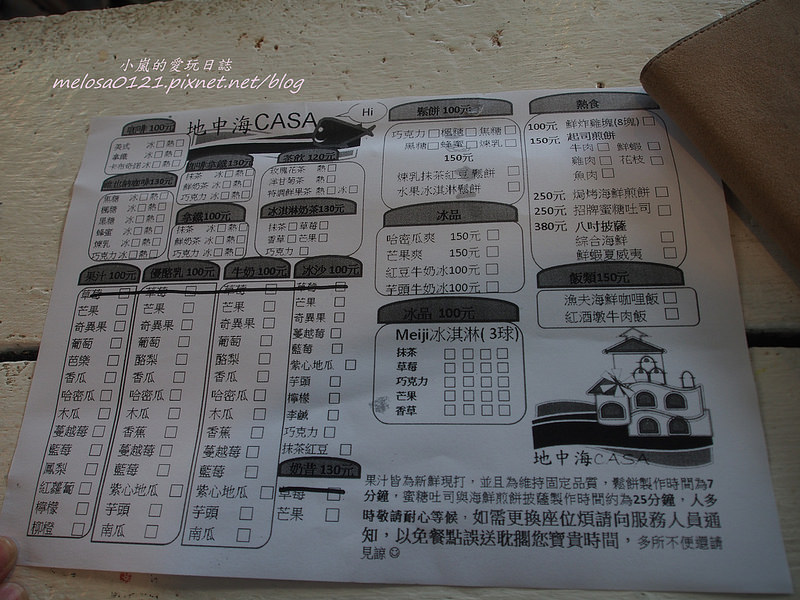 小嵐的愛玩日誌
melosa0121.pixnet.net/blog
地中海CASA
Hi
咖啡 100元
美式 冰□熱□
拿鐵 冰□熱□
卡布奇諾冰□熱□
焦糖 冰□熱□
楓糖 冰□熱□
黑糖 冰□熱□
蜂蜜 冰□熱□
煉乳 冰□熱□
巧克力冰□熱□
咖啡拿鐵130元
抹茶 冰□熱□
鮮奶茶 冰□熱□
巧克力 冰□熱□
拿鐵100元
抹茶 冰□熱□
鮮奶茶 冰□熱□
巧克力 冰□熱□
茶飲 120元
玫瑰花茶 熱□
洋甘菊茶 熱□
特調鮮果茶 熱□冰□
冰淇淋奶茶130元
抹茶□草莓□
香草□芒果□
巧克力□
果汁 100元
草莓□
芒果□
奇異果□
葡萄□
芭樂□
香瓜□
哈密瓜□
木瓜□
蔓越莓□
藍莓□
鳳梨□
紅蘿蔔□
檸檬□
柳橙□
優酪乳 100元
草莓□
芒果□
奇異果□
葡萄□
酪梨□
香瓜□
哈密瓜□
木瓜□
香蕉□
蔓越莓□
藍莓□
紫心地瓜□
芋頭□
南瓜□
牛奶 100元
草莓□
芒果□
奇異果□
葡萄□
酪梨□
香瓜□
哈密瓜□
木瓜□
香蕉□
蔓越莓□
藍莓□
紫心地瓜□
芋頭□
南瓜□
冰沙 100元
草莓□
芒果□
奇異果□
蔓越莓□
藍莓□
紫心地瓜□
芋頭□
檸檬□
李鹹□
巧克力□
抹茶紅豆□
奶昔 130元
草莓□
芒果□
鬆餅 100元
巧克力□楓糖□焦糖□
黑糖□蜂蜜□煉乳□
150元
煉乳抹茶紅豆鬆餅□
水果冰淇淋鬆餅□
冰品
哈密瓜爽 150元□
芒果爽 150元□
紅豆牛奶冰100元□
芋頭牛奶冰100元□
冰品 100元
Meiji冰淇淋(3球)
抹茶□□□□
草莓□□□□
巧克力□□□□
芒果□□□□
香草□□□□
熱食
100元 鮮炸雞塊(8塊)□
150元 起司煎餅
牛肉□ 鮮蝦□
雞肉□ 花枝□
魚肉□
250元 焗烤海鮮煎餅□
250元 招牌蜜糖吐司□
380元 八吋披薩
綜合海鮮□
鮮蝦夏威夷□
飯類150元
漁夫海鮮咖哩飯□
紅酒燉牛肉飯□
地中海CASA
果汁皆為新鮮現打，並且為維持固定品質，鬆餅製作時間為7
分鐘，蜜糖吐司與海鮮煎餅披薩製作時間約為25分鐘，人多
時敬請耐心等候，如需更換座位煩請向服務人員通
知，以免餐點誤送耽擱您寶貴時間，多所不便還請
見諒☺